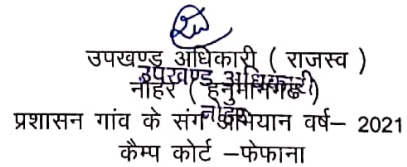 उपखण्ड अधिकारी ( राजस्व )
उपखण्ड अधिकारी
नोहर ( हनुमानगढ )
नोहर
प्रशासन गांव के संग अभियान वर्ष– 2021
कैम्प कोर्ट –फेफाना